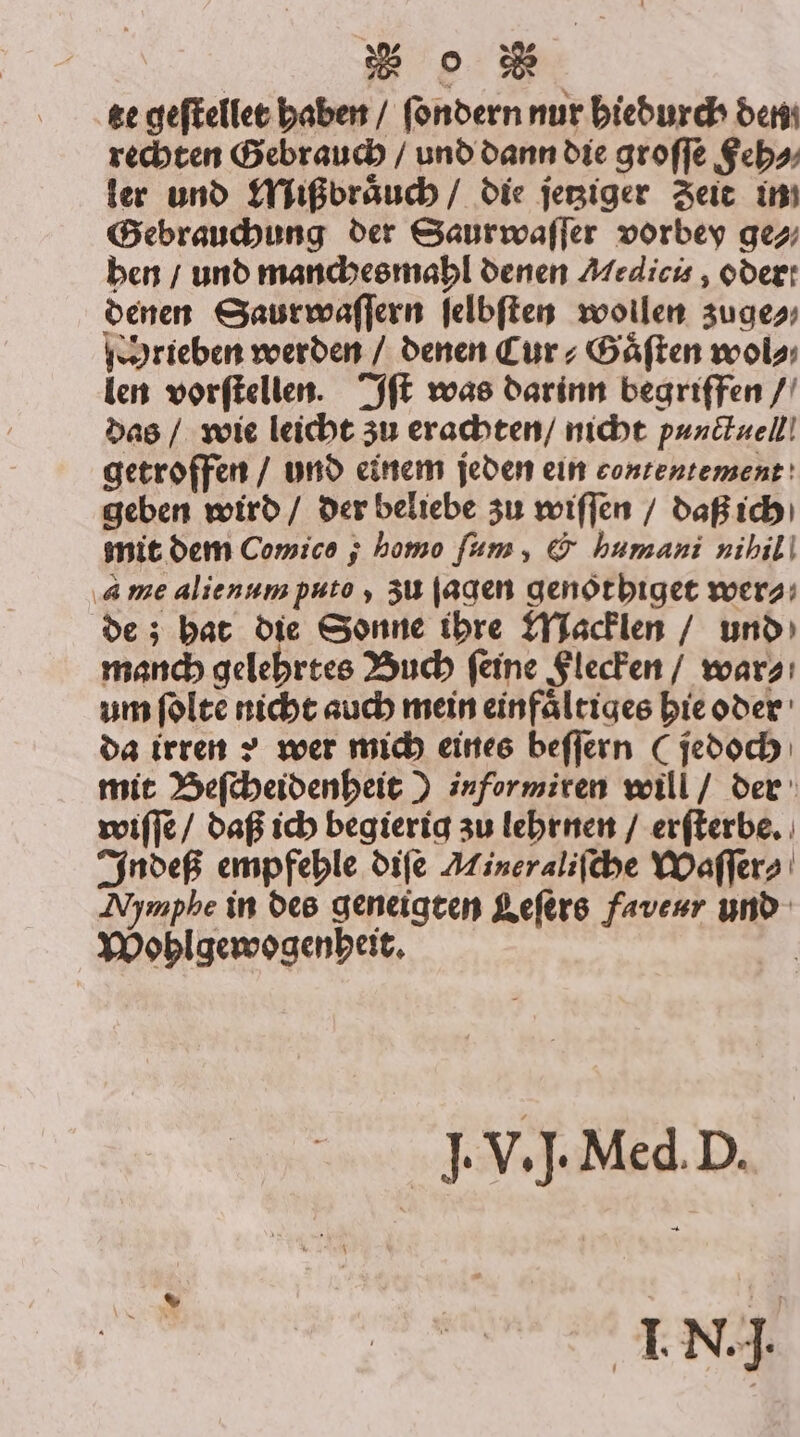 ❧ o ❧
te geſtellet haben / ſondern nur hiedurch den
rechten Gebrauch / und dann die groſſe Feh⸗
ler und Mißbraͤuch / die jetziger Zeit im
Gebrauchung der Saurwaſſer vorbey ge⸗
hen / und manchesmahl denen Medicis, oder
denen Saurwaſſern ſelbſten wollen zuge⸗
ſchrieben werden / denen Cur⸗Gaͤſten wol⸗
len vorſtellen. Iſt was darinn begriffen /
das / wie leicht zu erachten / nicht punctuell
getroffen / und einem jeden ein contentement
geben wird / der beliebe zu wiſſen / daß ich
mit dem Comico ; homo ſum, & humani nihil
à me alienum puto, zu ſagen genoͤthiget wer⸗
de ; hat die Sonne ihre Macklen / und
manch gelehrtes Buch ſeine Flecken / war⸗
um ſolte nicht auch mein einfaͤltiges hie oder
da irren ? wer mich eines beſſern ( jedoch
mit Beſcheidenheit ) informiren will / der
wiſſe / daß ich begierig zu lehrnen / erſterbe.
Indeß empfehle diſe Mineraliſche Waſſer⸗
Nymphe in des geneigten Leſers faveur und
Wohlgewogenheit.
J. V. J. Med. D.
I. N. J.